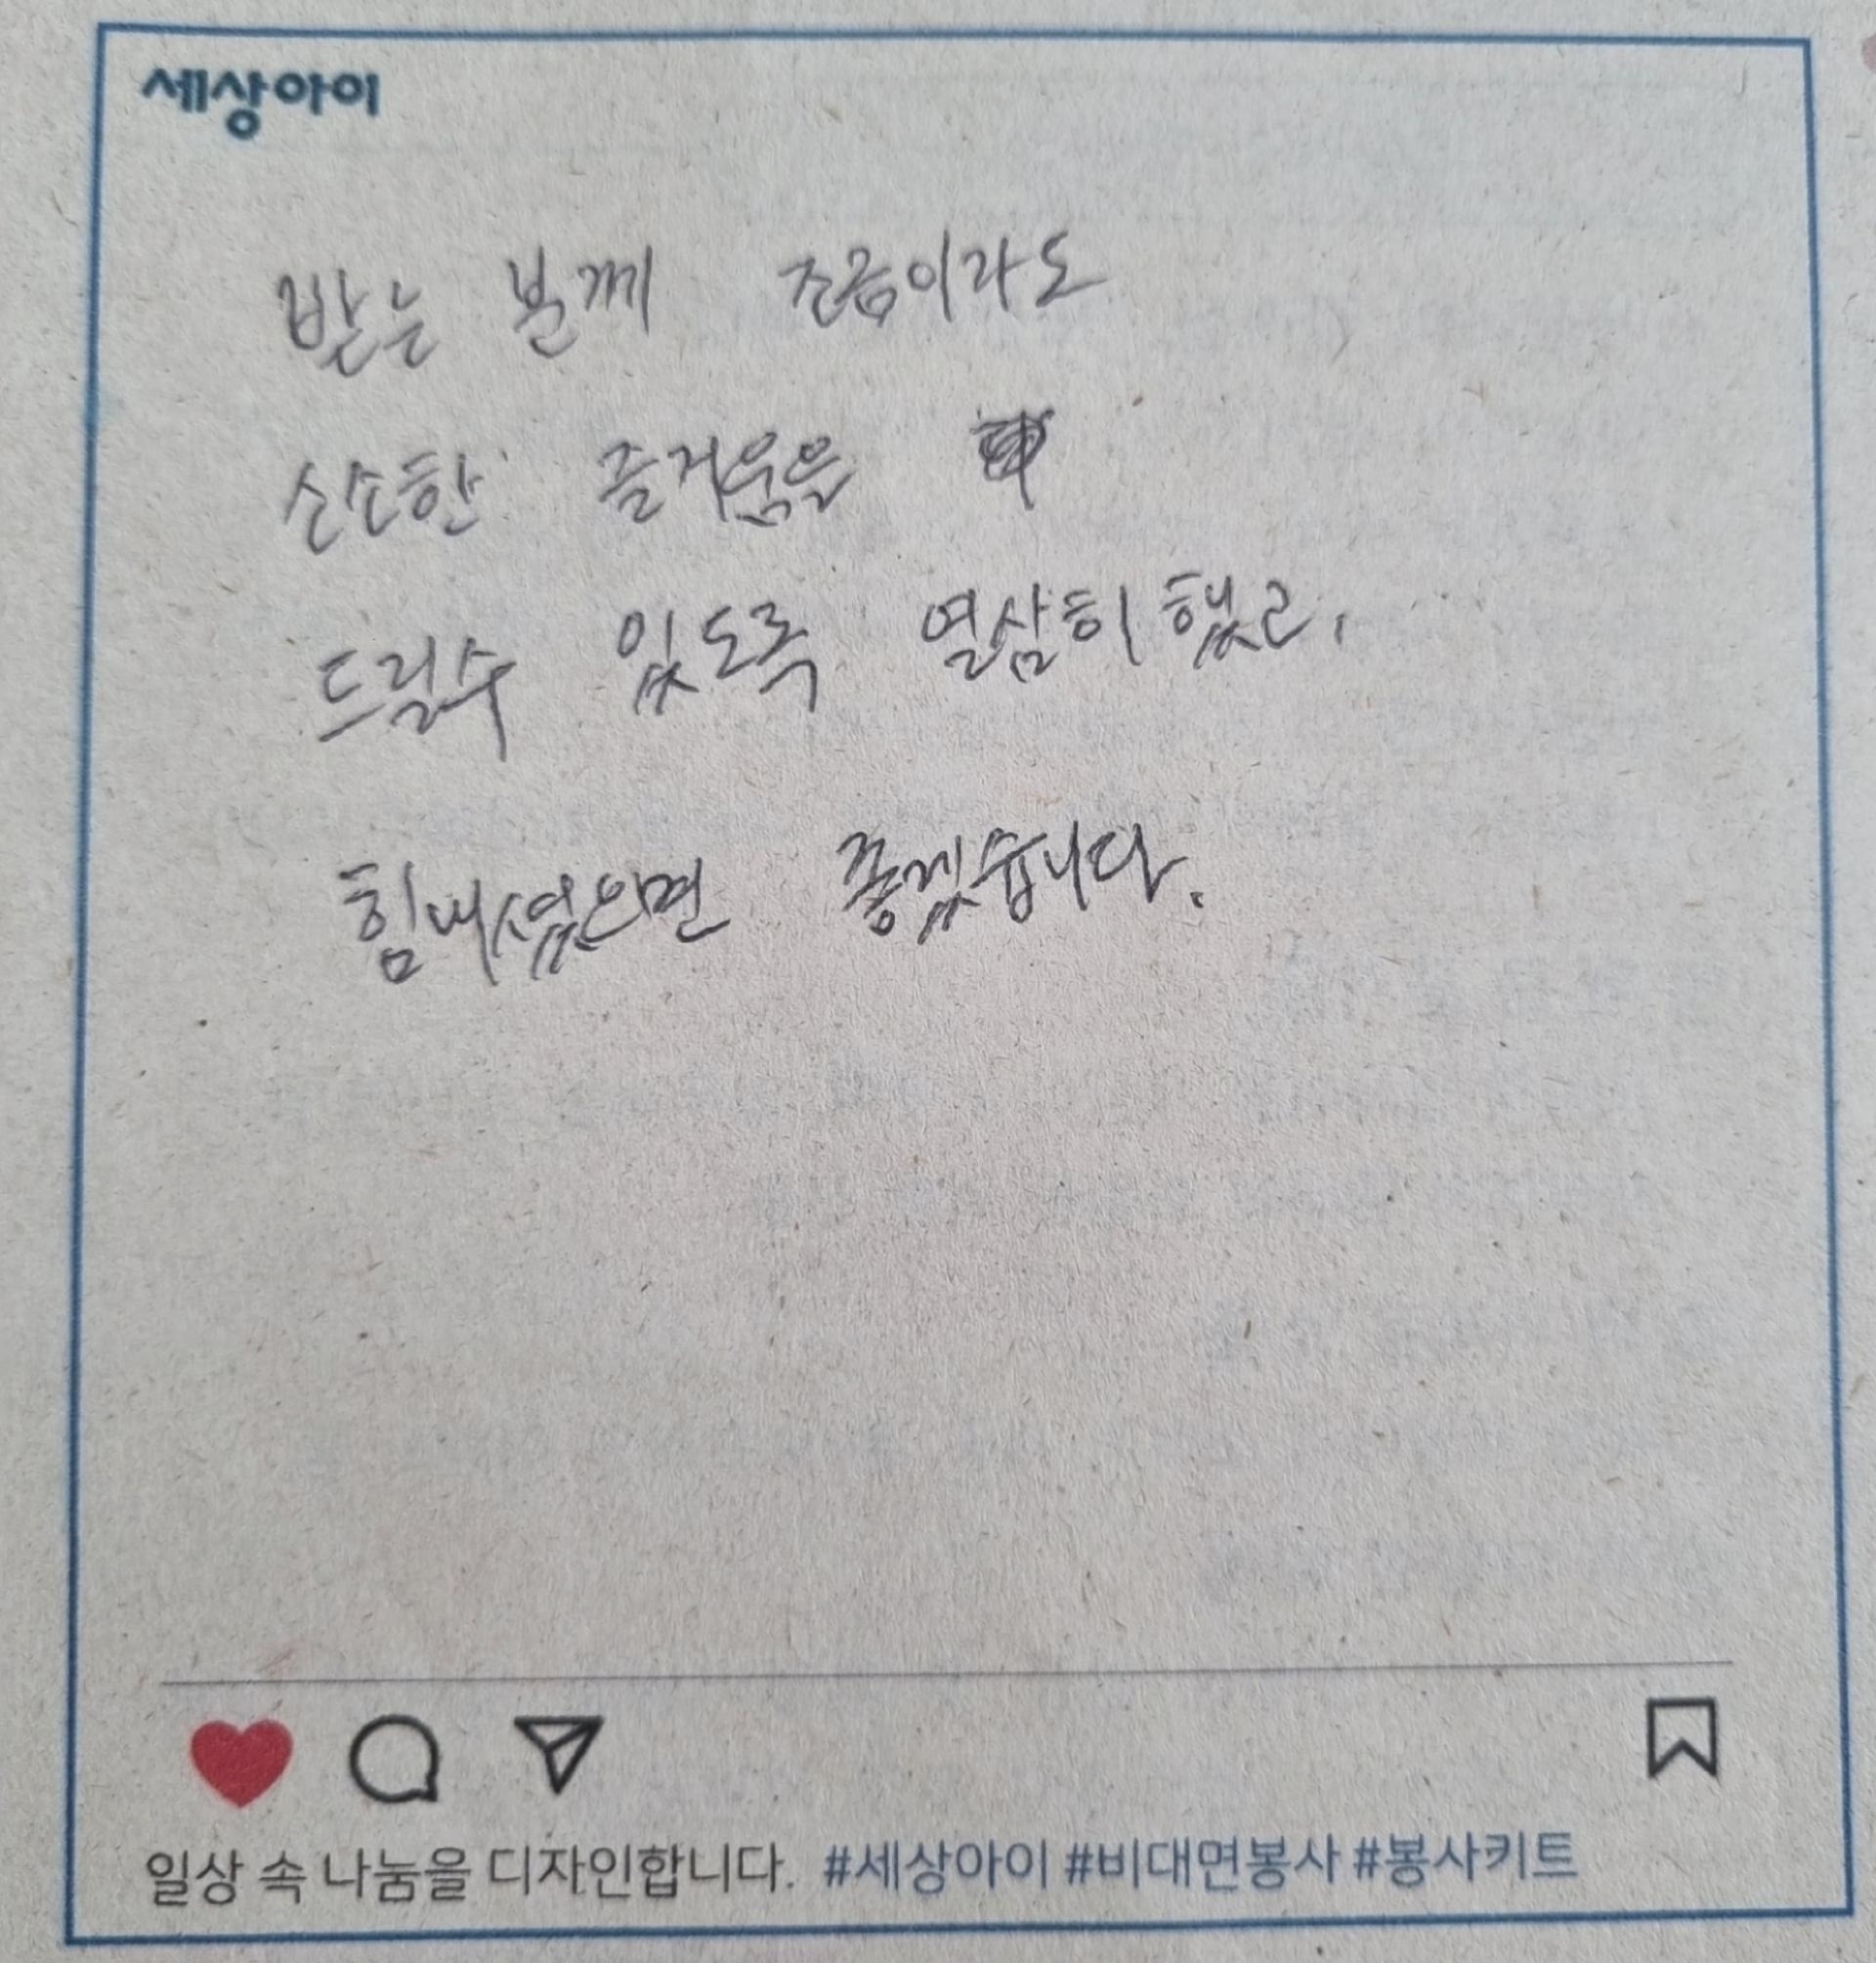 세상아이
받는 분께 조금이라도
소소한 즐거움을
드릴수 있도록 열심히 했고,
힘내셨으면 좋겠습니다.
일상 속 나눔을 디자인합니다. #세상아이 #비대면봉사 #봉사키트